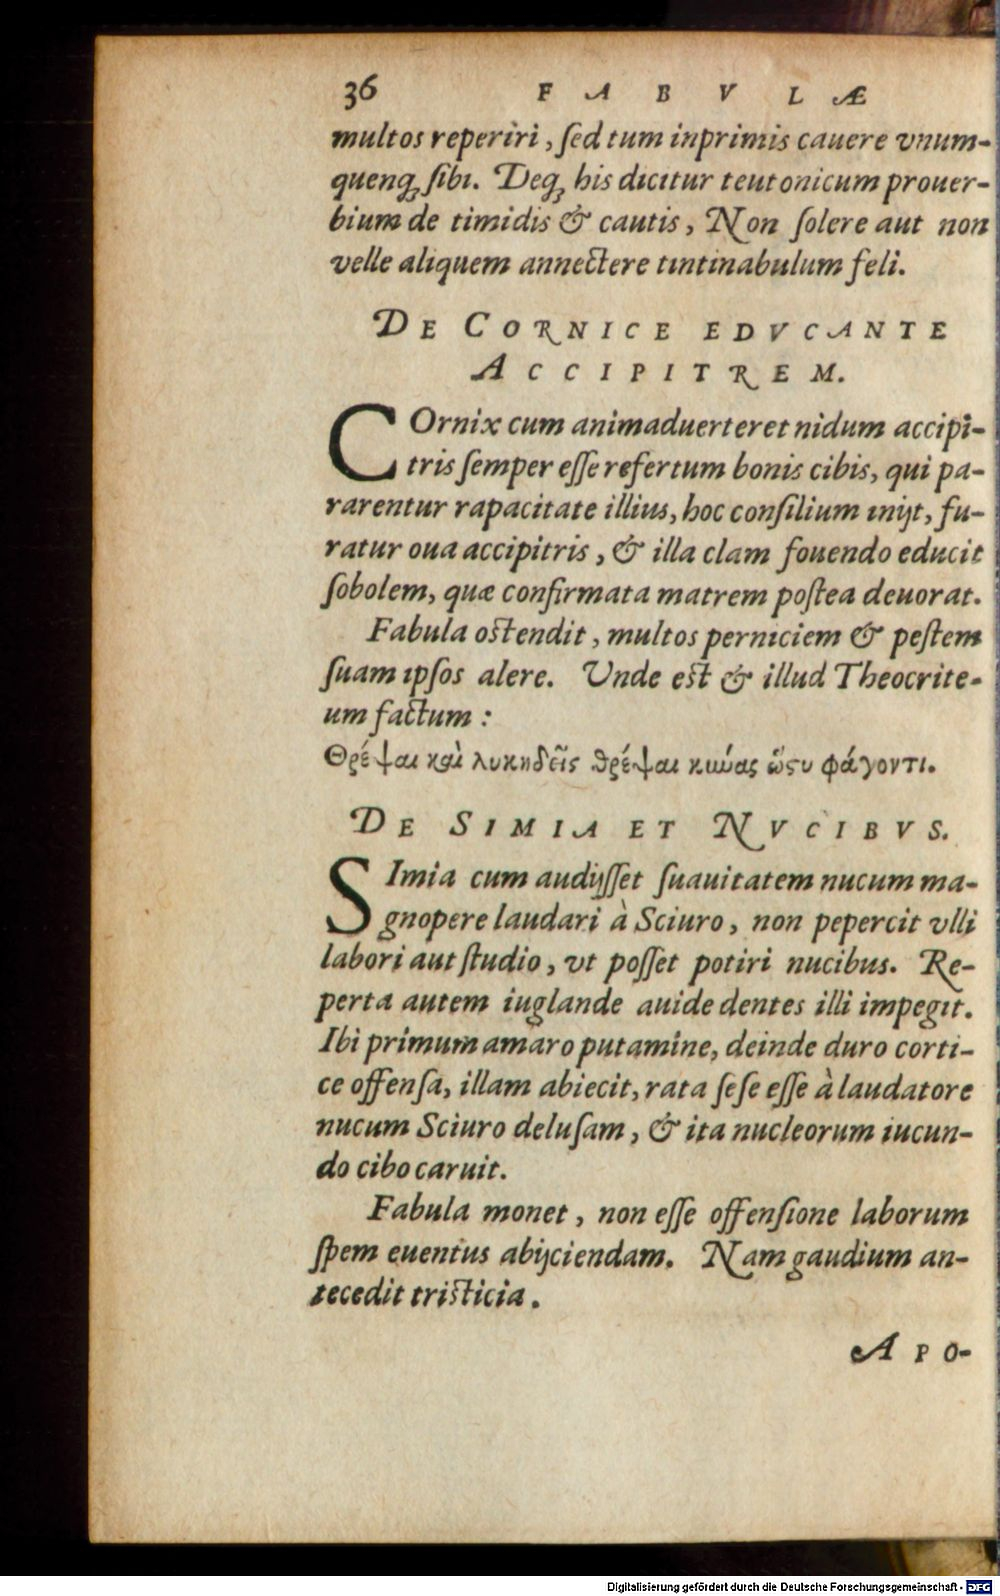 36 FABVLÆ
multos reperiri, ſed tum inprimis cauere vnum-
quenq; ſibi. Deq; his dicitur teutonicum prouer-
bium de timidis & cautis, Non ſolere aut non
velle aliquem annectere tintinabulum feli.
DE CORNICE EDVCANTE
ACCIPITREM.
COrnix cum animaduerteret nidum accipi-
tris ſemper eſſe refertum bonis cibis, qui pa-
rarentur rapacitate illius, hoc conſilium inijt, fu-
ratur oua accipitris, & illa clam fouendo educit
ſobolem, quæ confirmata matrem poſtea deuorat.
Fabula oſtendit, multos perniciem & peſtem
ſuam ipſos alere. Unde eſt & illud Theocrite-
um factum:
Θρέψαι καὶ λυκηδεῖς θρέψαι κύνας ὥς τυ φάγοντι.
DE SIMIA ET NVCIBVS.
SImia cum audijſſet ſuauitatem nucum ma-
gnopere laudari à Sciuro, non pepercit vlli
labori aut ſtudio, vt poſſet potiri nucibus. Re-
perta autem iuglande auide dentes illi impegit.
Ibi primum amaro putamine, deinde duro corti-
ce offenſa, illam abiecit, rata ſeſe eſſe à laudatore
nucum Sciuro deluſam, & ita nucleorum iucun-
do cibo caruit.
Fabula monet, non eſſe offenſione laborum
ſpem euentus abijciendam. Nam gaudium an-
tecedit triſticia.
APO-
Digitalisierung gefördert durch die Deutsche Forschungsgemeinschaft - DFG